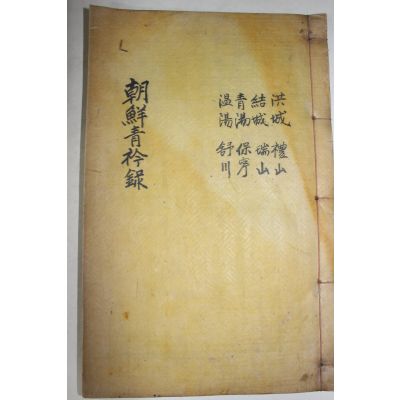 朝鮮青衿錄
洪城 禮山
結城 瑞山
青陽 保寧
温陽 舒川